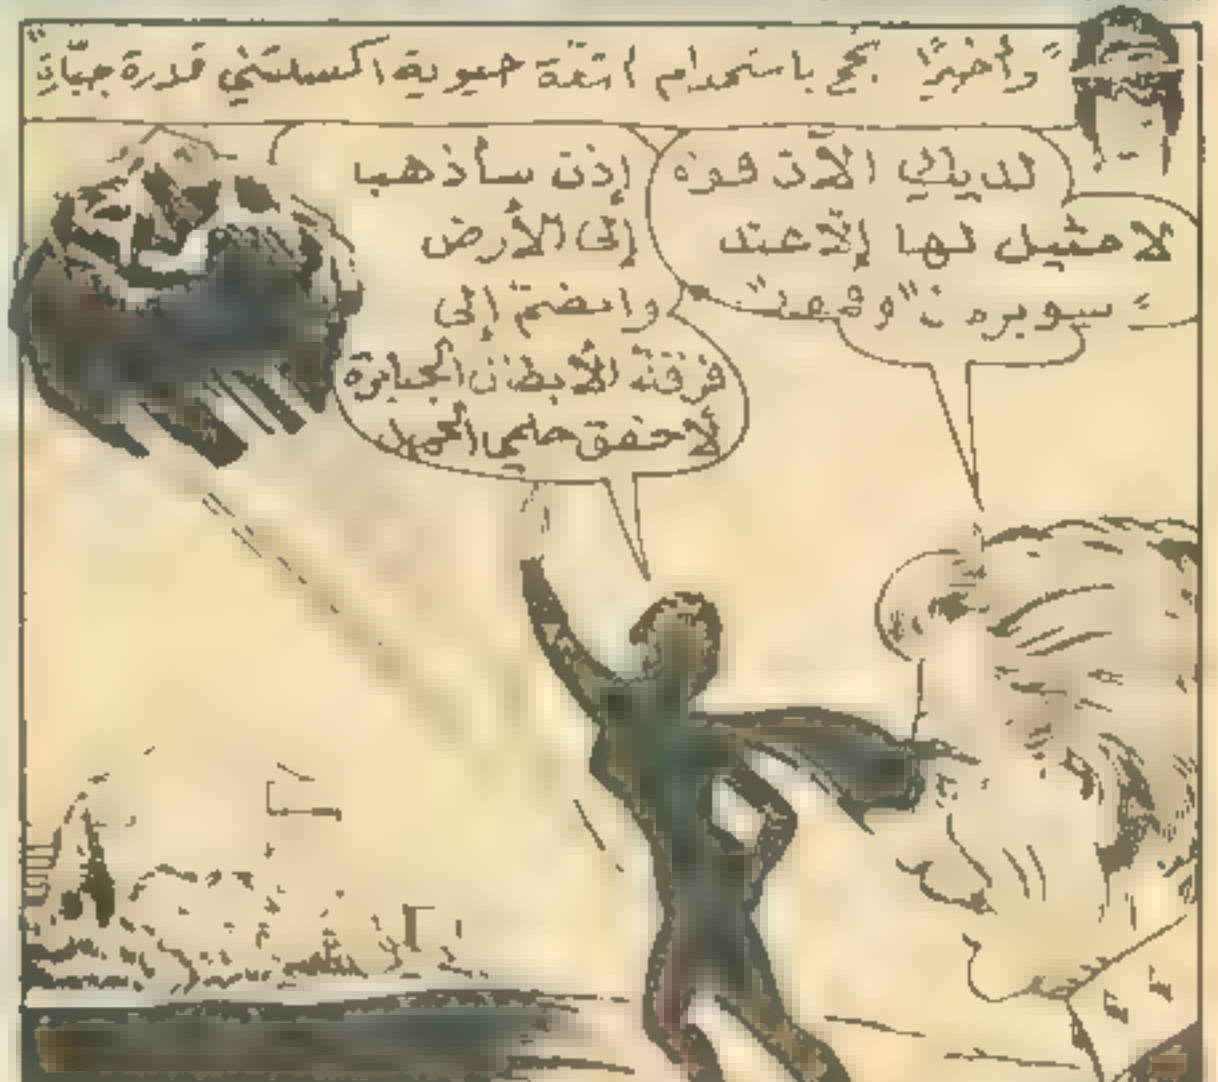 "وأخيرًا نجح باستخدام اشعّة حيوية اكسبتني قدرة جبّارة"
لديك الآن قوة
لا مثيل لها إلّا عند
"سوبرمن" و
إذن سأذهب
إلى الأرض
وانضمّ إلى
فرقة الأبطال الجبابرة
لأحقق حلمي